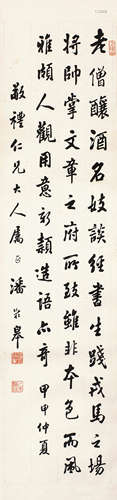 老僧釀酒名妓談經書生踐戎馬之場
將帥掌文章之府所致雖非本色而風
雅頗人觀用意新穎造語亦奇 甲申仲夏
敬禮仁兄大人屬正 潘齡皋